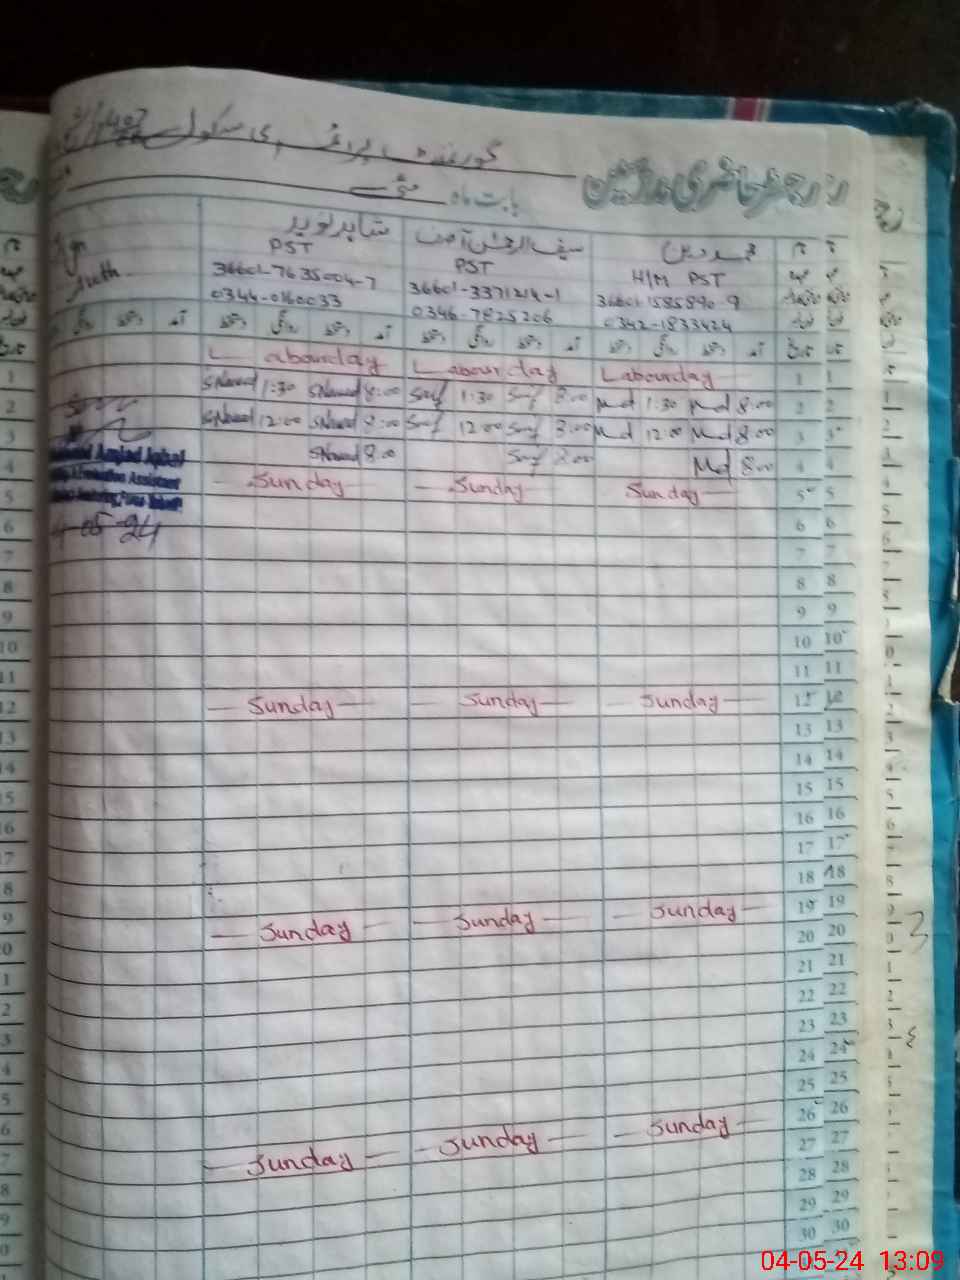 گورنمنٹ پرائمری سکول
رجسٹر حاضری مدرسین
بابت ماہ مئی
شاہد نوید سیف الرحمٰن آصف محمد دین
Sign PST PST H/M PST
Auth. 36601-7635004-7 36601-3371214-1 36601-1585890-9
0344-0160033 0346-7825206 0342-1833424
دستخط روانگی دستخط آمد دستخط روانگی دستخط آمد دستخط روانگی دستخط آمد تاریخ
Labourday Labourday Labourday 1 1
SNaveed 1:30 SNaveed 8:00 Saif 1:30 Saif 8:00 Md 1:30 Md 8:00 2 2
SNaveed 12:00 SNaveed 8:00 Saif 12:00 Saif 8:00 Md 12:00 Md 8:00 3 3
SNaveed 8:00 Saif 8:00 Md 8:00 4 4
Amjad Iqbal
Evaluation Assistant
Monitoring
Sunday Sunday Sunday 5 5
05-24
6 6
7 7
8 8
9 9
10 10
11 11
Sunday Sunday Sunday 12 12
13 13
14 14
15 15
16 16
17 17
18 18
Sunday Sunday Sunday 19 19
20 20
21 21
22 22
23 23
24 24
25 25
Sunday Sunday Sunday 26 26
27 27
28 28
29 29
30 30
04-05-24 13:09